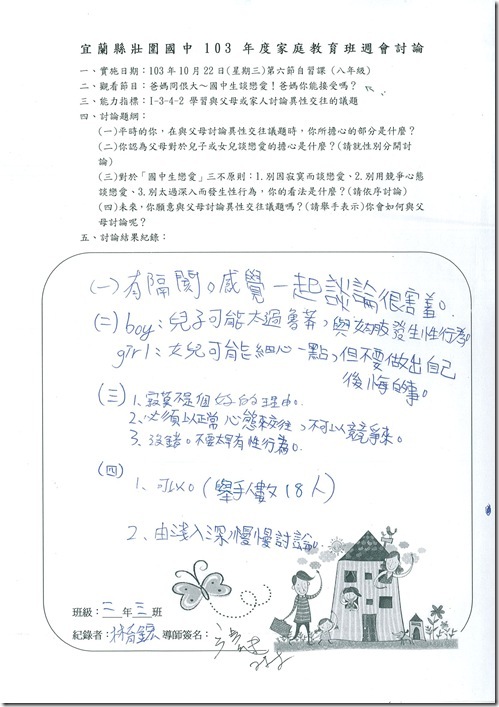 宜蘭縣壯圍國中 103 年度家庭教育班週會討論
一、實施日期：103 年 10 月 22 日(星期三)第六節自習課 (八年級)
二、觀看節目：爸媽冏很大～國中生談戀愛！爸媽你能接受嗎？
三、能力指標：1-3-4-2 學習與父母或家人討論異性交往的議題
四、討論題綱：
(一)平時的你，在與父母討論異性交往議題時，你所擔心的部分是什麼？
(二)你認為父母對於兒子或女兒談戀愛的擔心是什麼？(請就性別分開討
論)
(三)對於「國中生戀愛」三不原則：1.別因寂寞而談戀愛、2.別用競爭心態
談戀愛、3.別太過深入而發生性行為，你的看法是什麼？(請依序討論)
(四)未來，你願意與父母討論異性交往議題嗎？(請舉手表示)你會如何與父
母討論呢？
五、討論結果紀錄：
(一)有隔閡。感覺一起談論很害羞。
(二) boy：兒子可能太過魯莽，與女朋友發生性行為。
girl：女兒可能細心一點，但不要做出自己
後悔的事。
(三) 1、寂寞不是個好的理由。
2、必須以正常心態來交往，不可以競爭來。
3、沒錯。不要太早有性行為。
(四) 1、可以。(舉手人數 18 人)
2、由淺入深，慢慢討論。
班級：三年三班
紀錄者：導師簽名：